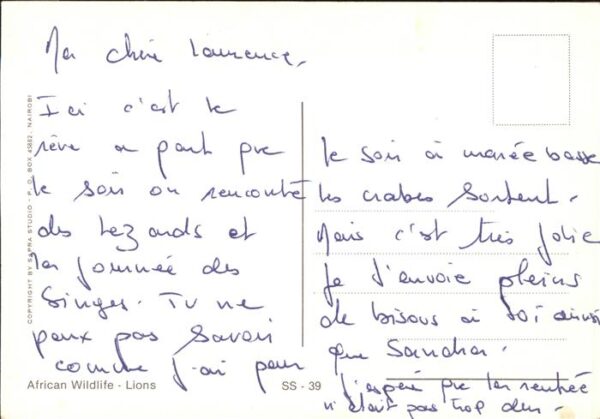 Ma chère Laurence,
Ici c'est le
rêve a part que
le soir on rencontre
des lezards et
la journée des
singes. Tu ne
peux pas savoir
comme j'ai peur
le soir à marée basse
les crabes sortent.
Mais c'est très jolie
Je t'envoie pleins
de bisous à toi ainsi
que Sandra.
J'espère que la rentrée
n'était pas trop dur.
COPYRIGHT BY SAPRA STUDIO - P. O. BOX 45882, NAIROBI
African Wildlife - Lions
SS - 39